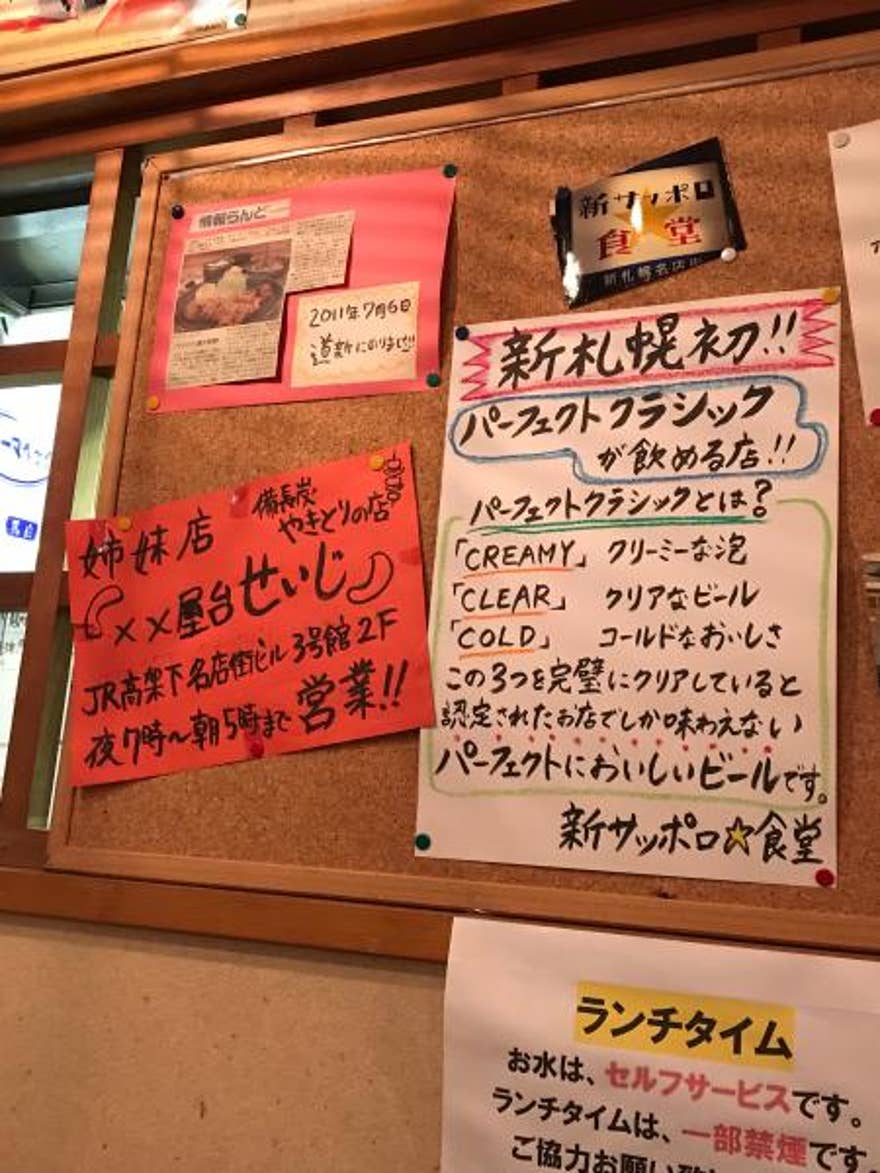 情報らんど
2011年7月6日
道新にのりました!!!
新サッポロ
食★堂
新札幌名店街
新札幌初!!
パーフェクトクラシック
が飲める店!!
パーフェクトクラシックとは?
「CREAMY」 クリーミーな泡
「CLEAR」 クリアなビール
「COLD」 コールドなおいしさ
この3つを完璧にクリアしていると
認定されたお店でしか味わえない
パーフェクトにおいしいビールです。
新サッポロ☆食堂
姉妹店
備長炭
やきとりの店
××屋台せいじ
JR高架下名店街ビル3号館2F
夜7時〜朝5時まで営業!!
ランチタイム
お水は、セルフサービスです。
ランチタイムは、一部禁煙です
ご協力お願い致